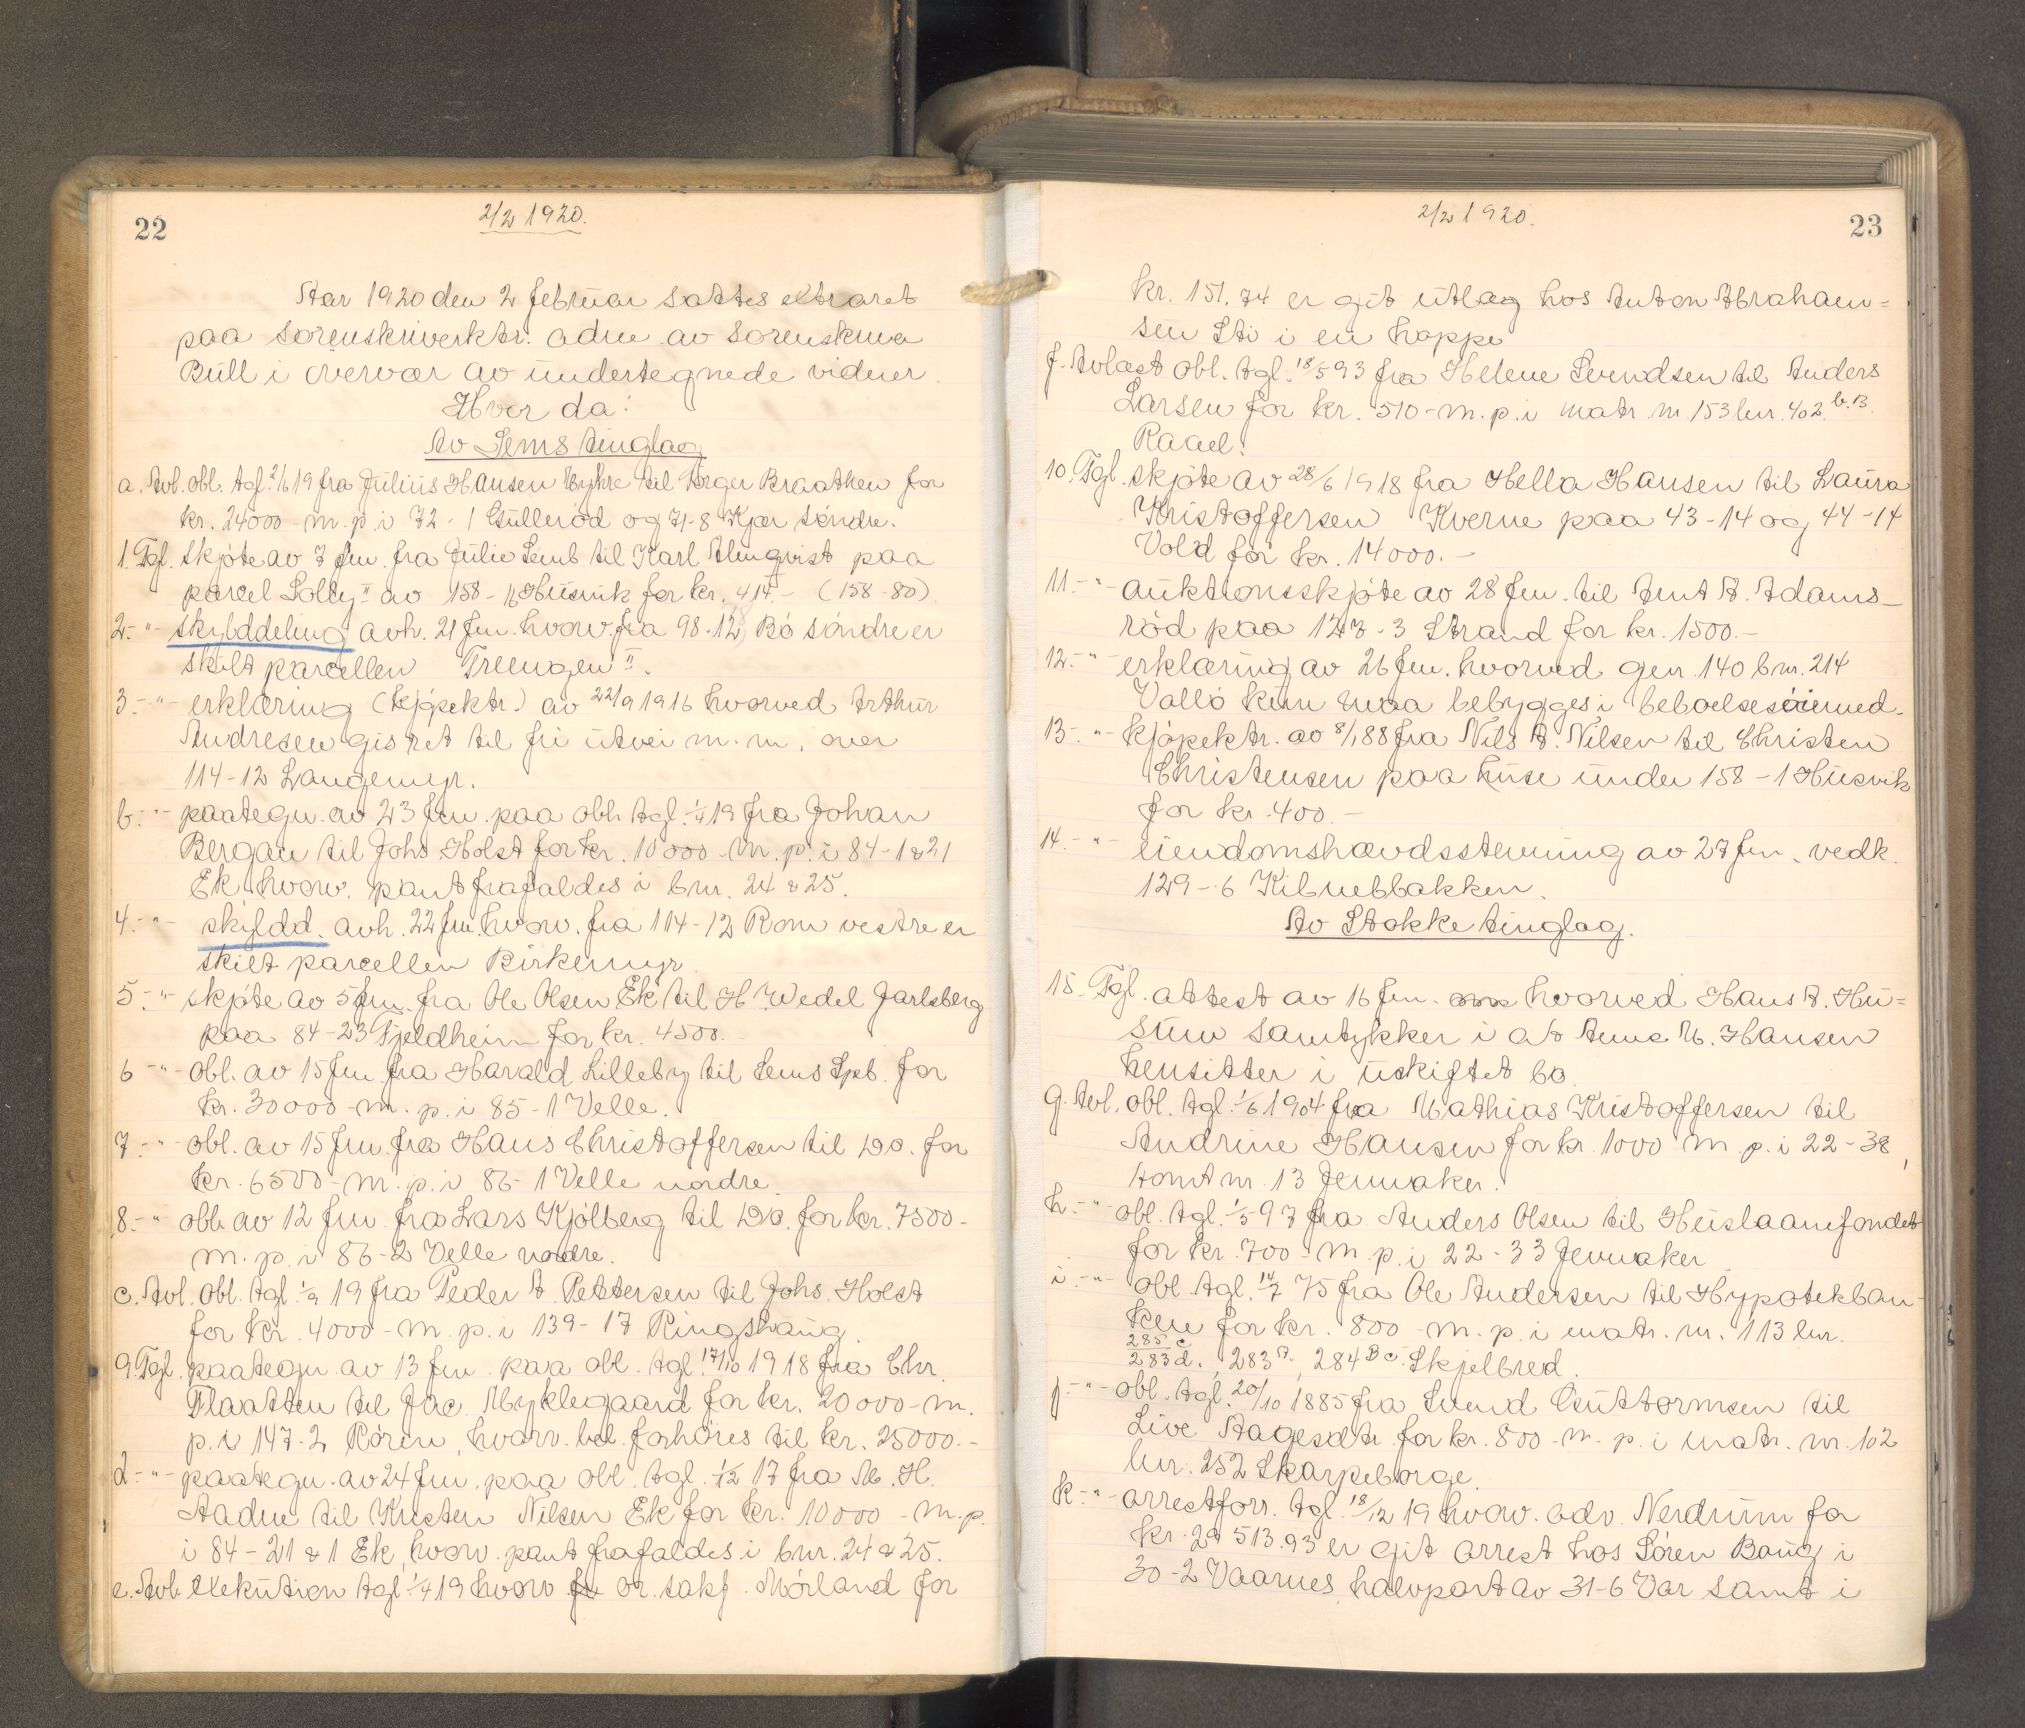 22
2/2 1920.
Aar 1920 den 2 februar sattes extraret
paa sorenskriverktr. adm. av sorenskriver
Bull i overvær av undertegnede vidner.
Hvor da:
Av Sems tinglag
a. Avl. obl. tgl. 2/6 19 fra Julius Hansen Myhre til Borger Braathen for
kr. 24000 - m. p. i 72 - 1 Gulleröd og 71-8 Kjær söndre.
1. Tgl. skjöte av 7 jan. fra Julie Semb til Karl Almqvist paa
parcel Solby II av 158 - 16 Husvik for kr. 414. - (158-80)
2. -"- skylddeling avh. 21 jan. hvorv. fra 98-12 Bö söndre er
skilt parcellen Treengen II.
3. -"- erklæring (kjöpektr.) av 22/9 1916 hvorved Arthur
Andresen gis ret til fri utvei m. m. over
114-12 Langemyr.
b. -"- paategn. av 23 jan. paa obl. tgl. 1/4 19 fra Johan
Bergan til Johs Holst for kr. 10000 - m. p. i 84 - 1 & 21
Ek hvorv. pant frafaldes i bnr. 24 & 25.
4. -"- skyldd. avh. 22 jan. hvorv. fra 114-12 Rom vestre er
skilt parcellen Birkemyr
5. -"- skjöte av 5 jan. fra Ole Olsen Ek til H. Wedel Jarlsberg
paa 84-23 Fjeldheim for kr. 4500.-
6 -"- obl. av 15 jan fra Harald Lilleby til Sems Spb. for
kr. 30000 - m. p. i 85-1 Velle.
7. -"- obl. av 15 jan. fra Hans Christoffersen til Do. for
kr. 6500 - m. p. i 86-1 Velle nordre
8. -"- obl. av 12 jan. fra Lars Kjölberg til Do. for kr. 7500 -
m. p. i 86-2 Velle nordre.
c. Avl. obl. tgl. 1/9 19 fra Peder A. Pettersen til Johs. Holst
for kr. 4000 - m. p. i 139-17 Ringshaug.
9. Tgl. paategn. av 13 jan. paa obl. tgl. 17/10 1918 fra Chr.
Flaatten til Jac. Myklegaard for kr. 20000 - m.
p. i 147-2 Rören, hvorv. bel. forhöies til kr. 25000.-
d. -"- paategn. av 24 jan. paa obl. tgl. 1/12 17 fra M. H.
Aadne til Kristen Nilsen Ek for kr. 10000 - m. p.
i 84 - 21 & 1 Ek, hvorv. pant frafaldes i bnr. 24 & 25.
e. Avl. Exekution tgl. 1/4 19 hvorv or. sakf. Mörland for
23
2/2 1920.
kr. 151.74 er git utlæg hos Anton Abraham=
sen Sti i en hoppe
f. Avlæst obl. tgl. 18/5 93 fra Helene Svendsen til Anders
Larsen for kr. 510 - m. p. i matr. nr. 153 lnr. 402 b.B.
Raael.
10. Tgl. skjöte av 28/6 1918 fra Hella Hansen til Laura
Kristoffersen Kverne paa 43-14 og 44-14
Vold for kr. 14000.-
11. -"- auktionsskjöte av 28 jan. til Arnt A. Adams-
röd paa 143-3 Strand for kr. 1500.-
12. -"- erklæring av 26 jan. hvorved gnr. 140 bnr. 214
Vallö kun maa bebygges i beboelsesöiemed.
13. -"- kjöpektr. av 8/1 88 fra Nils A. Nilsen til Christen
Christensen paa huse under 158-1 Husvik
for kr. 400.-
14. -"- eiendomshævdsstevning av 27 jan. vedk.
129-6 Kilnebbakken.
Av Stokke tinglag.
15. Tgl. attest av 16 jan. hvorved Hans A. Hu=
sum samtykker i at Anna M. Hansen
hensitter i uskiftet bo.
g. Avl. obl. tgl. 1/6 1904 fra Mathias Kristoffersen til
Andrine Hansen for kr. 1000 m. p. i 22-38,
tomt nr. 13 Jernaker.
h. -"- obl. tgl. 1/5 97 fra Anders Olsen til Huslaanefondet
for kr. 700 - m. p. i 22-33 Jernaker
i. -"- obl. tgl. 14/7 75 fra Ole Andersen til Hypotekban-
ken for kr. 800 - m. p. i matr. nr. 113 lnr.
285 c
283 d, 283 A. 284 B c Skjelbred.
j. -"- obl. tgl. 20/10 1885 fra Svend Guttormsen til
Live Aagesdtr. for kr. 800 - m. p. i matr. nr. 102
lnr. 252 Skarpeborge.
k. -"- arrestforr. tgl. 18/12 19 hvorv. adv. Nerdrum for
kr. 513.93 er git arrest hos Sören Baug i
30-2 Vaarnes, halvpart av 31-6 Var samt i